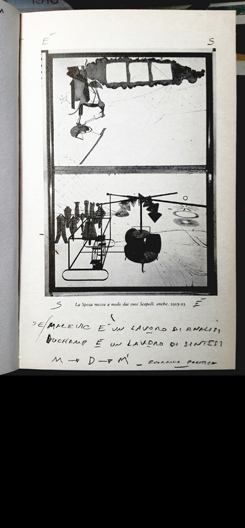 E S
S E
La Sposa messa a nudo dai suoi Scapoli, anche, 1915-23
SE MALEVIC E' UN LAVORO DI ANALISI
DUCHAMP E' UN LAVORO DI SINTESI
M → D → M'